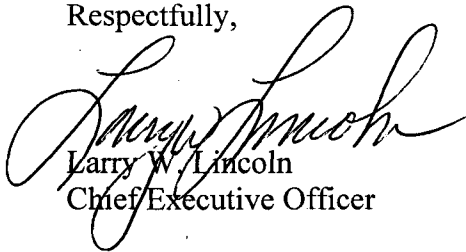 Respectfully,
Larry W. Lincoln
Larry W. Lincoln
Chief Executive Officer